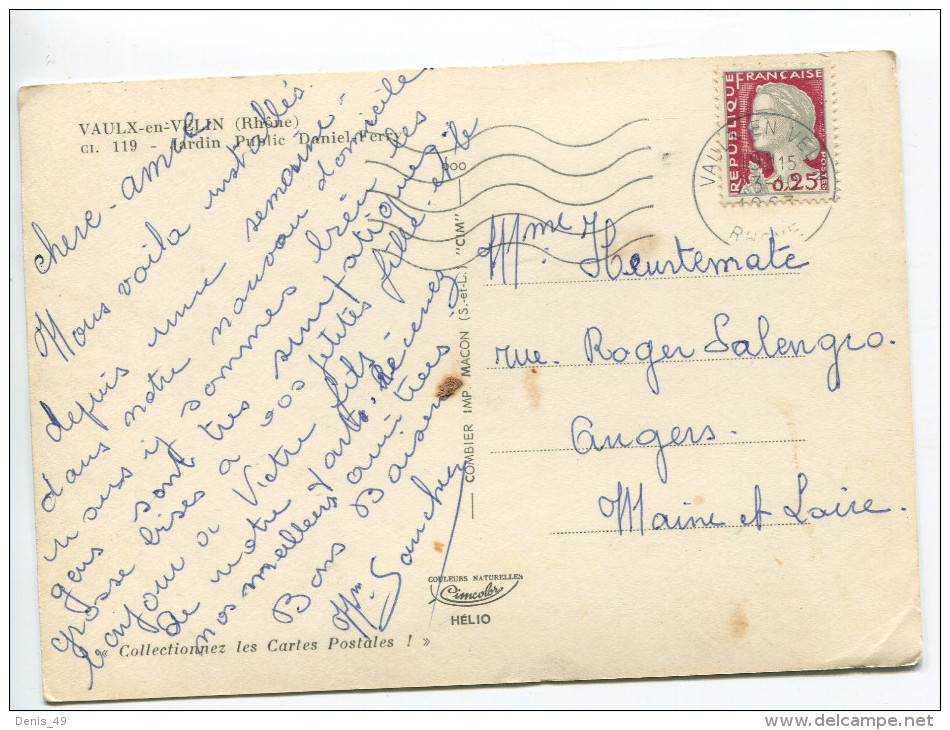 VAULX-en-VELIN (Rhône)
CI. 119 - Jardin Public Daniel-Ferry
chere amie
Nous voila installés
depuis une semaine
dans notre nouveau domicile
nous y sommes bien les
gens sont tres simpatique
grosse bises a vos petites fille et le
bonjour a Votre fils
de notre part. Recevez
nos meilleurs amitiées.
Bons Baisers.
Mme Sanchez
« Collectionnez les Cartes Postales ! »
COMBIER IMP. MACON (S.-et-L.) "CIM"
COULEURS NATURELLES
Cimcolor
HÉLIO
RÉPUBLIQUE FRANÇAISE
POSTES
0,25
VAULX EN VELIN
RHONE
Mme Heurtematte
rue. Roger Salengro.
Angers.
Maine et Loire.
Denis_49
delcampe.net